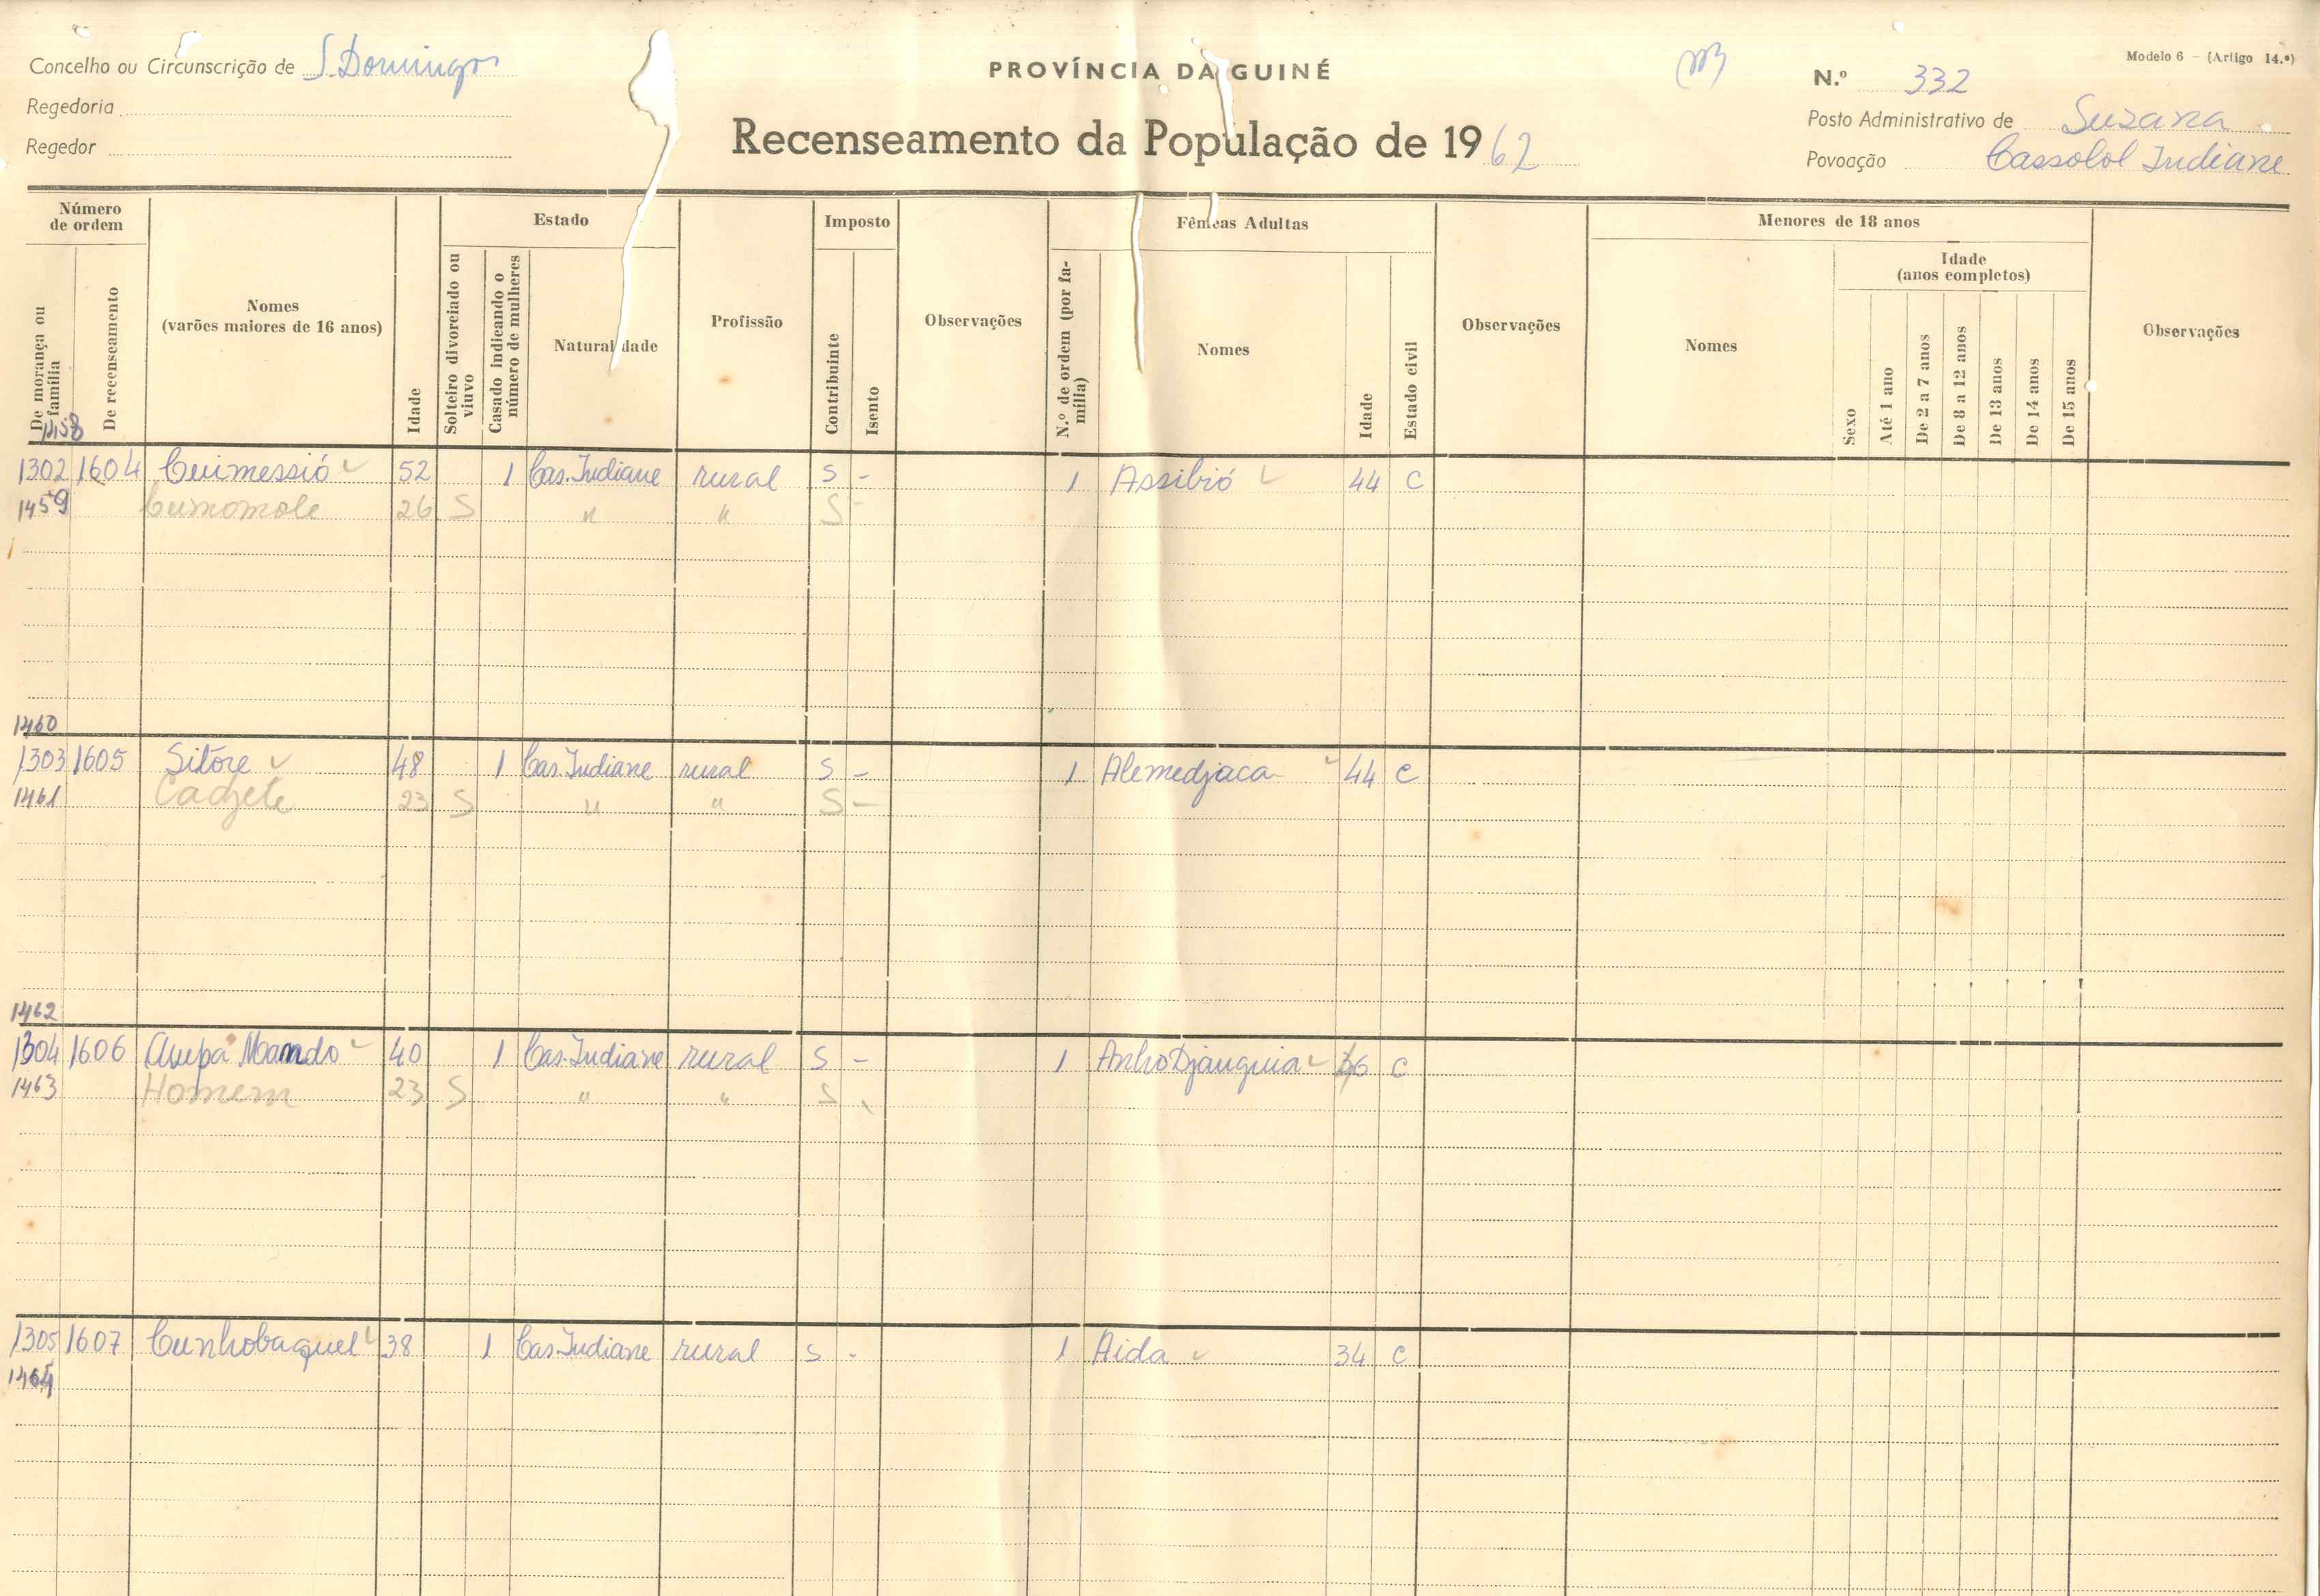 Modelo 6 - (Artigo 14.º)
Concelho ou Circunscrição de S. Domingos
PROVÍNCIA DA GUINÉ
N.º 332
Regedoria
Posto Administrativo de Suzana
Regedor
Recenseamento da População de 1962
Povoação Cassolol Indiane
Número de ordem
Estado
Imposto
Fêmeas Adultas
Menores de 18 anos
De morança ou família
De recenseamento
Nomes (varões maiores de 16 anos)
Idade
Solteiro divorciado ou viuvo
Casado indicando o número de mulheres
Naturalidade
Profissão
Contribuinte
Isento
Observações
N.º de ordem (por família)
Nomes
Idade
Estado civil
Observações
Nomes
Sexo
Idade (anos completos)
Até 1 ano
De 2 a 7 anos
De 8 a 12 anos
De 13 anos
De 14 anos
De 15 anos
Observações
1458
1302 1604 Cuimessió 52 1 Cas. Indiane rural S - 1 Assibió 44 C
1459 Cumomole 26 S " " S -
1460
1303 1605 Sitóre 48 1 Cas. Indiane rural S - 1 Alemedjaca 44 C
1461 Cadjete 23 S " " S -
1462
1304 1606 Mando 40 1 Cas. Indiane rural S - 1 AnhoDjanguia 36 C
1463 Homem 23 S " " S
1305 1607 Cunhobaquel 38 1 Cas Indiane rural S - 1 Aida 34 C
1464